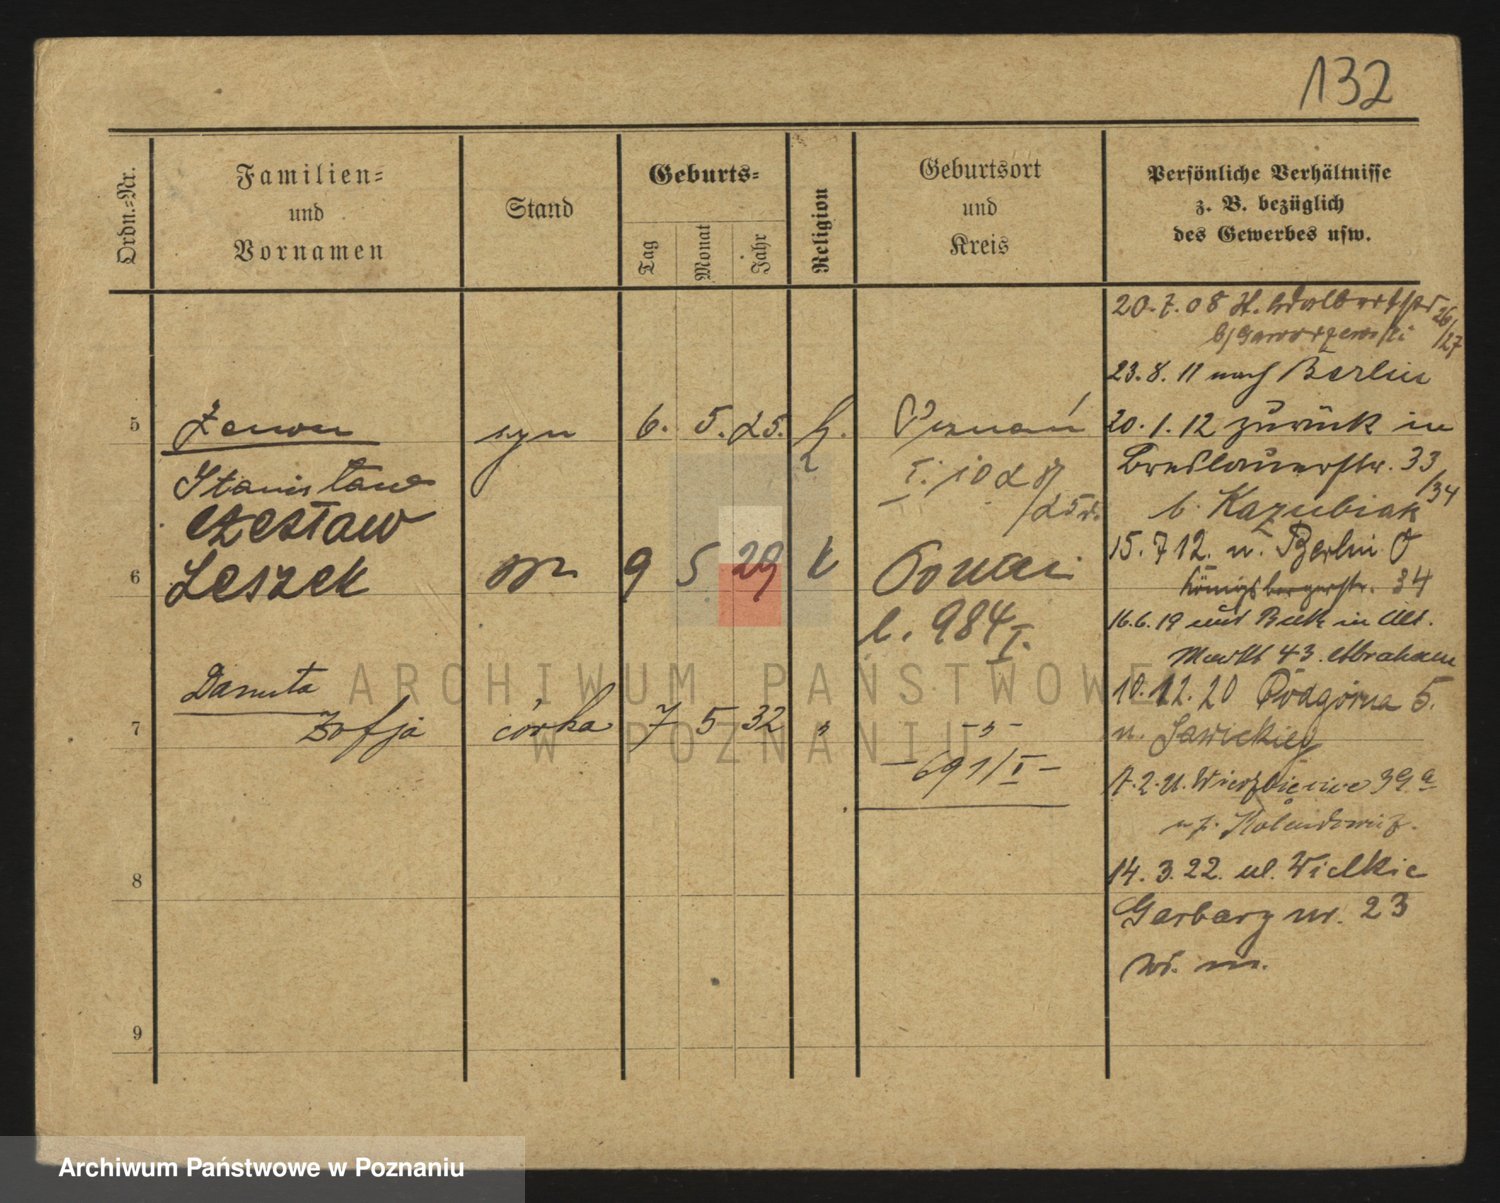 132
Ordn.-Nr.
Familien-
und
Vornamen
Stand
Geburts-
Tag
Monat
Jahr
Religion
Geburtsort
und
Kreis
Persönliche Verhältnisse
z. B. bezüglich
des Gewerbes usw.
20.7.08 26/27
23.8.11 nach Berlin
5 Zenon syn 6. 5. 25. Poznań
Stanisław
Czesław
6 Leszek 9 5 29 k
l. 984 I.
Danuta
7 Zofja córka 7 5 32 „ -„-
-691/I-
20.1.12 zurück in
Breslauerstr. 33/34
b. Kazubiak
15.7 12. n. Berlin O
Königsbergerstr. 34
16.6.19
Markt 43.
10.12.20 Podgórna 5.
u. Jawickiej
39 a
14.3.22. ul. Wielkie
Garbary nr. 23
8
9
ARCHIWUM PAŃSTWOWE
W POZNANIU
Archiwum Państwowe w Poznaniu